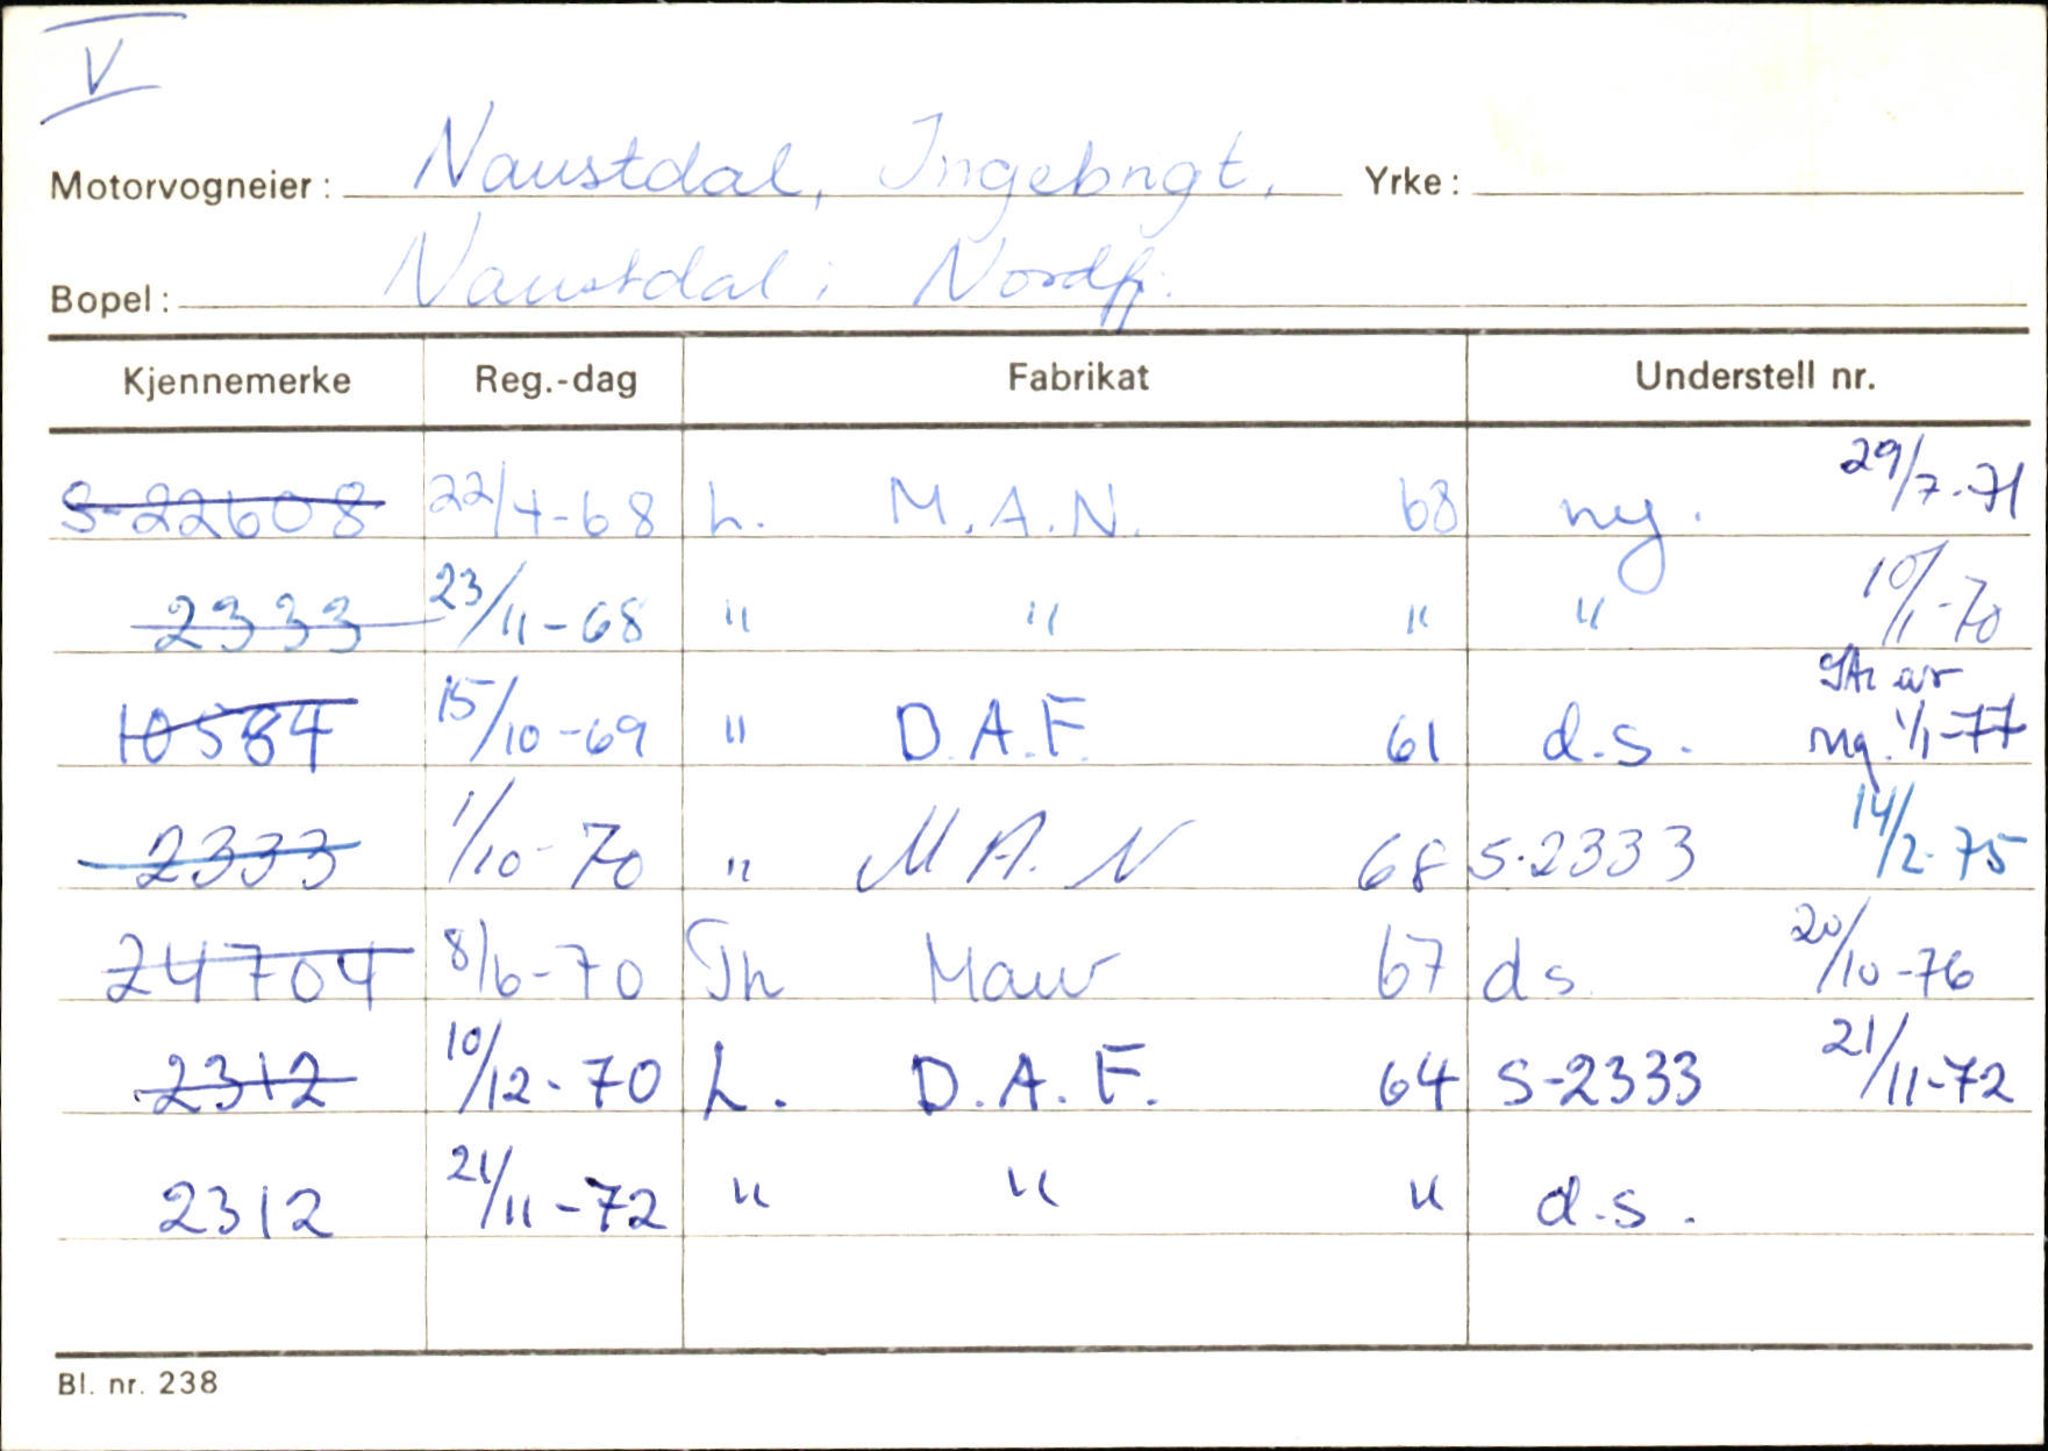 V
Motorvogneier: Naustdal, Ingebrigt. Yrke:
Bopel: Naustdal i Nordfj.
Kjennemerke Reg.-dag Fabrikat Understell nr.
S-22608 22/4-68 L. M.A.N. 68 ny. 29/7-71
2333 23/11-68 " " " " 10/1-70
10584 15/10-69 " D.A.F. 61 d.s. ng. 1/1-77
2333 1/10-70 " M A. N 68 S-2333 14/2-75
24704 8/6-70 Th Maur 67 ds 20/10-76
2312 10/12-70 L. D.A.F. 64 S-2333 21/11-72
2312 21/11-72 " " " d.s.
Bl. nr. 238